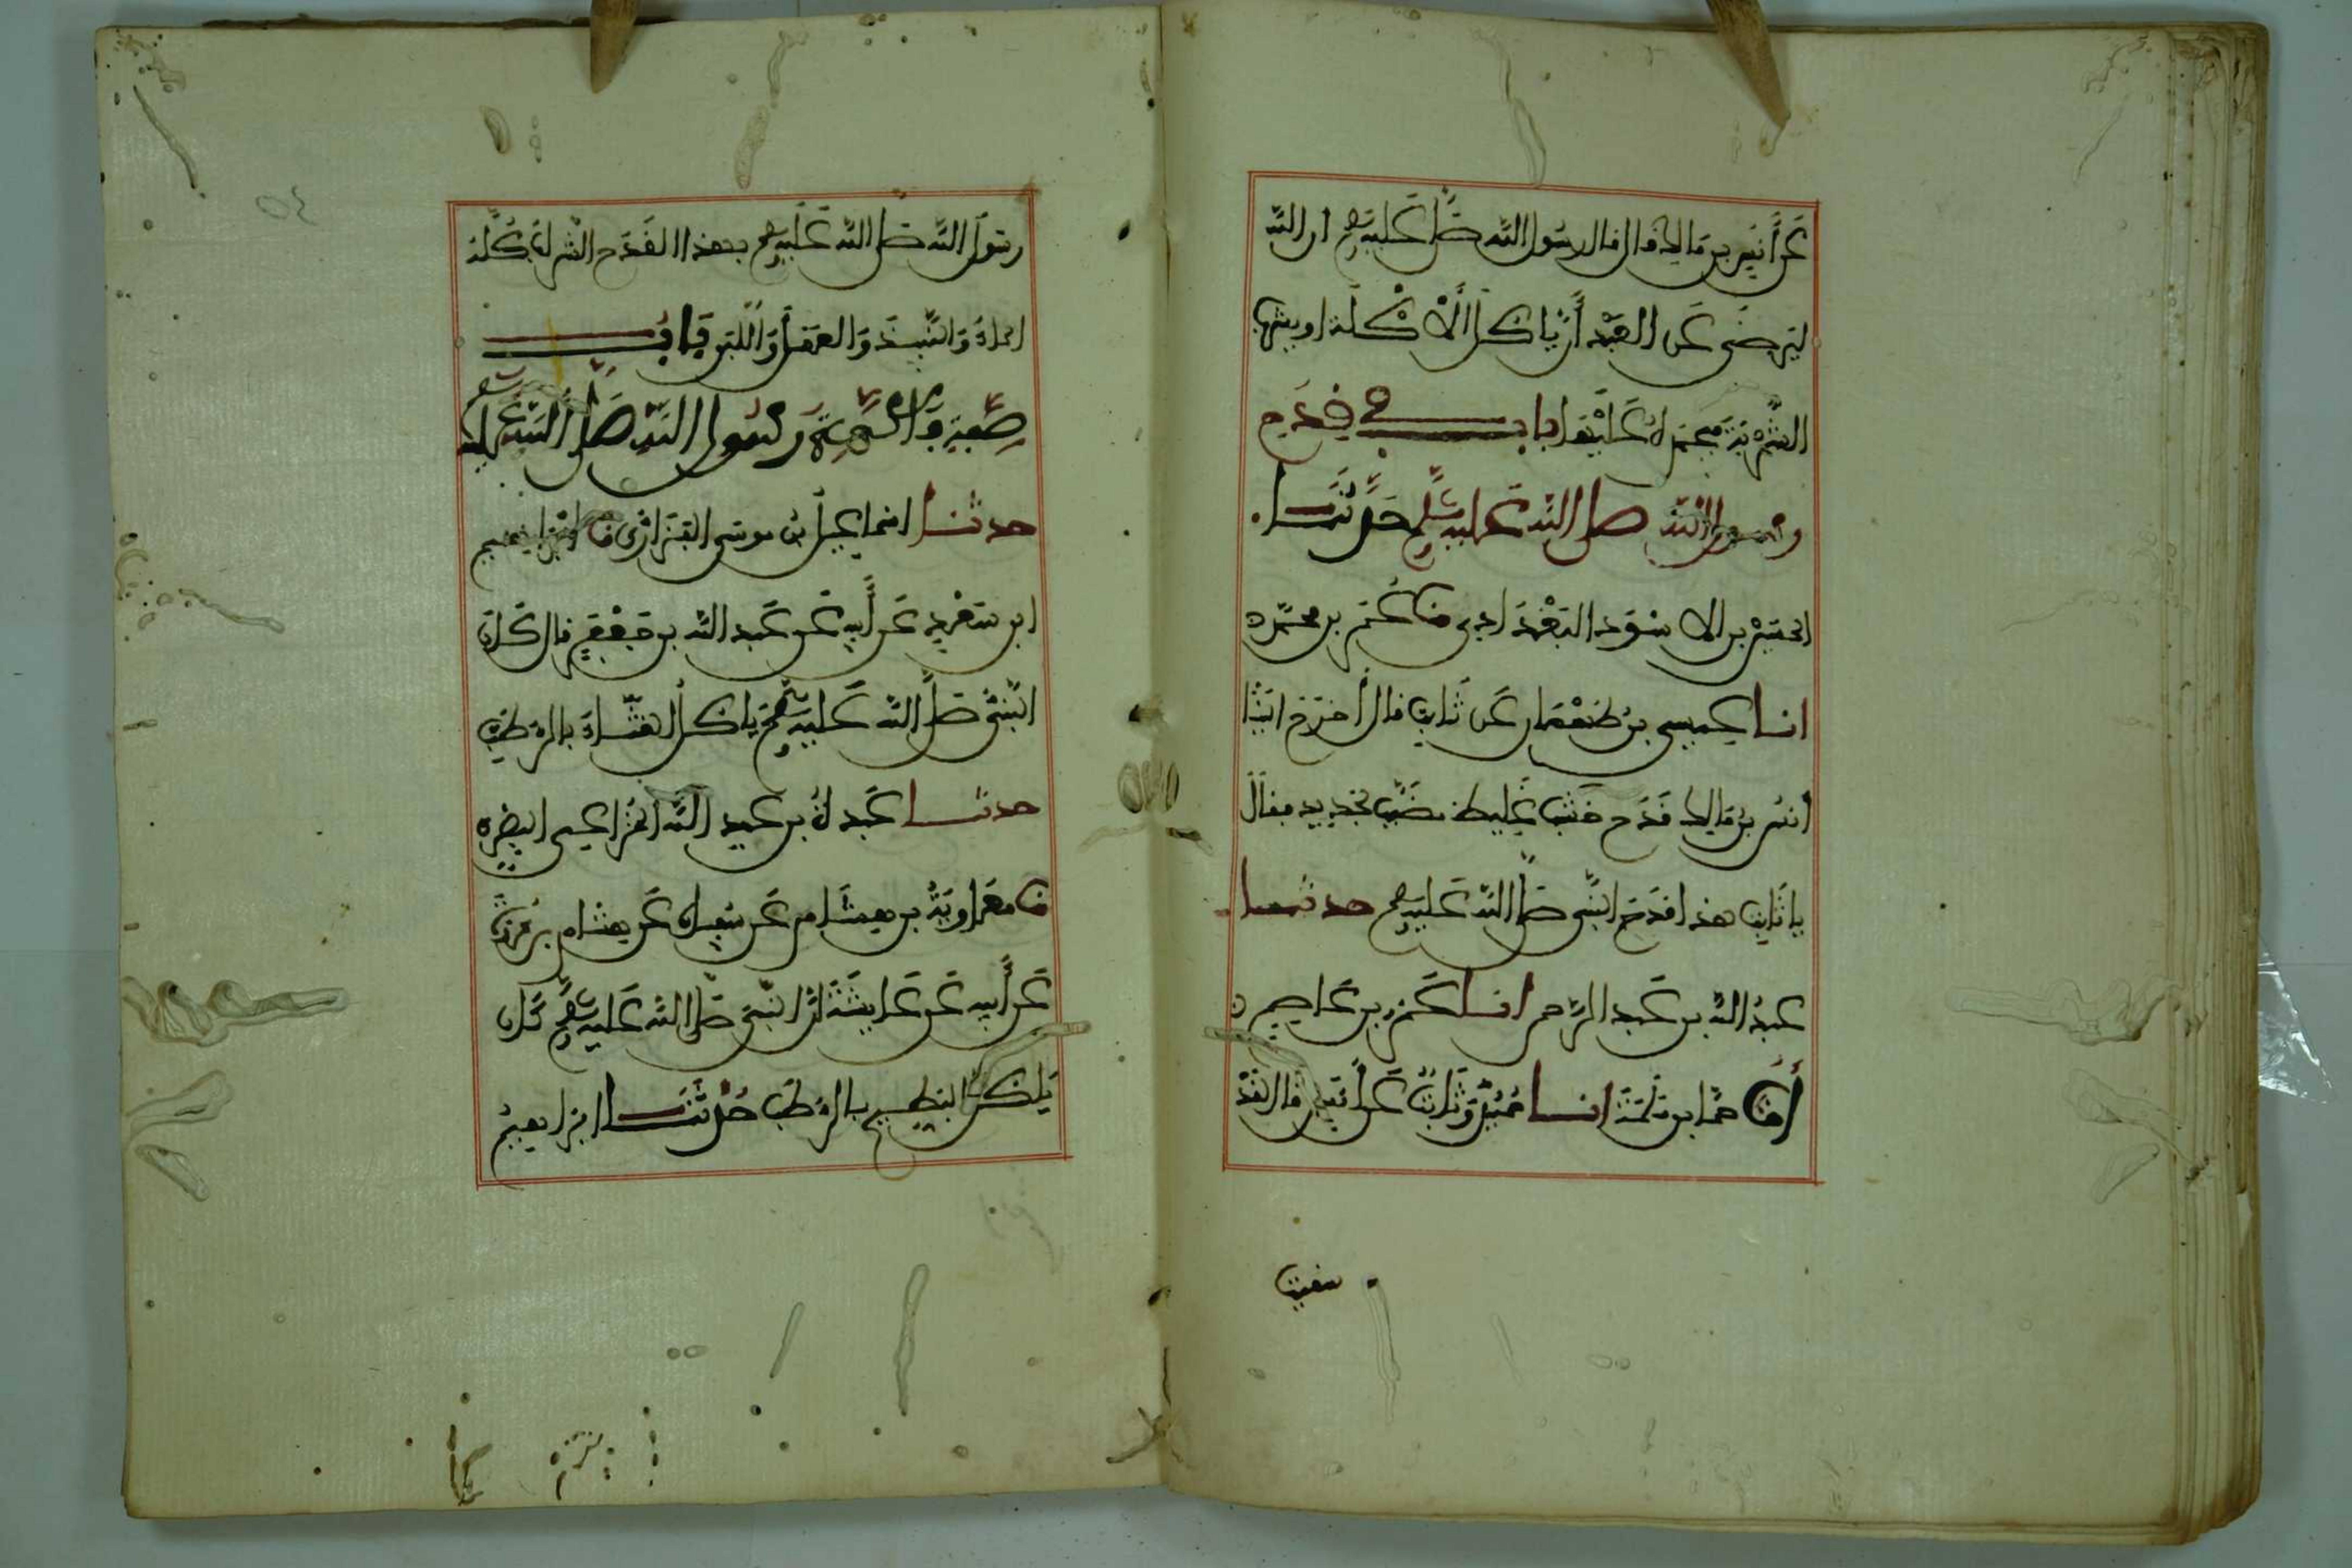 عَنْ أَنَسِ بن مَالِك قال قال رسُول اللّه صَلَّى عَليه وسلم ان اللّه
ليَرضَى عَن العَبْد أَنْ يَاكل الأَكْلَة او يشرب
الشَّربَة فيحمدهُ عَلَيْها باب في قدح
رسول اللّه صلى اللّه عليه وسلم حَدَّثَنَا
الحسَيْن بن الاسْوَد البَغْدَادي نا عَمرو بن محمّد
انا عيسى بن طَهْمَان عَن ثَابِت قال أَخرَجَ الَيْنَا
أنسُ بنُ مَالِك قَدَح خَشَب غَلِيظ مضَبّب بحَدِيد فقال
يا ثَابِت هذا قدَح النّبي صَلّى اللّه عَليه وسلم حدثنا
عبدُ اللّه بن عَبد الرّحمن انا عَمرو بن عَاصِم
أنا حمّاد بن سَلَمَة انا حُمَيْدٌ وَثَابِتٌ عَن أَنَسٍ قال لقَدْ
سقيت
٥٤
رسُول اللّه صَلّى اللّه عَلَيه وسلم بهذا القَدَح الشّرابَ كُلَّهُ
الماءُ وَالنَّبِيذَ وَالعَسَلَ وَاللَّبَنَ بَابُ
صِفَةِ فَاكِهَةِ رَسُولِ اللّه صَلَّى اللّه عَليه وسلم
حدثنا اسماعِيلُ بنُ موسَى الفَزَارِي نا ابْرَاهِيم
ابن سَعْدٍ عَن أَبِيه عَن عَبد اللّه بن جَعْفَرٍ قال كَانَ
النّبيّ صَلَّى اللّه عَليه وسلم يَاكل القثَّاءَ بالرُّطَبِ
حدثنا عَبدَةُ بن عَبد اللّه الخُزَاعِي البصْري
نا معَاويَة بن هِشَام عَن سُفيان عَن هِشَام بن عُرْوَة
عَن أَبيه عَن عَائِشَةَ أنَّ النّبيّ صَلّى اللّه عَليه وسلم كَان
يَاكل البطيخ بالرُّطَب حَدَّثَنَا ابراهيمُ